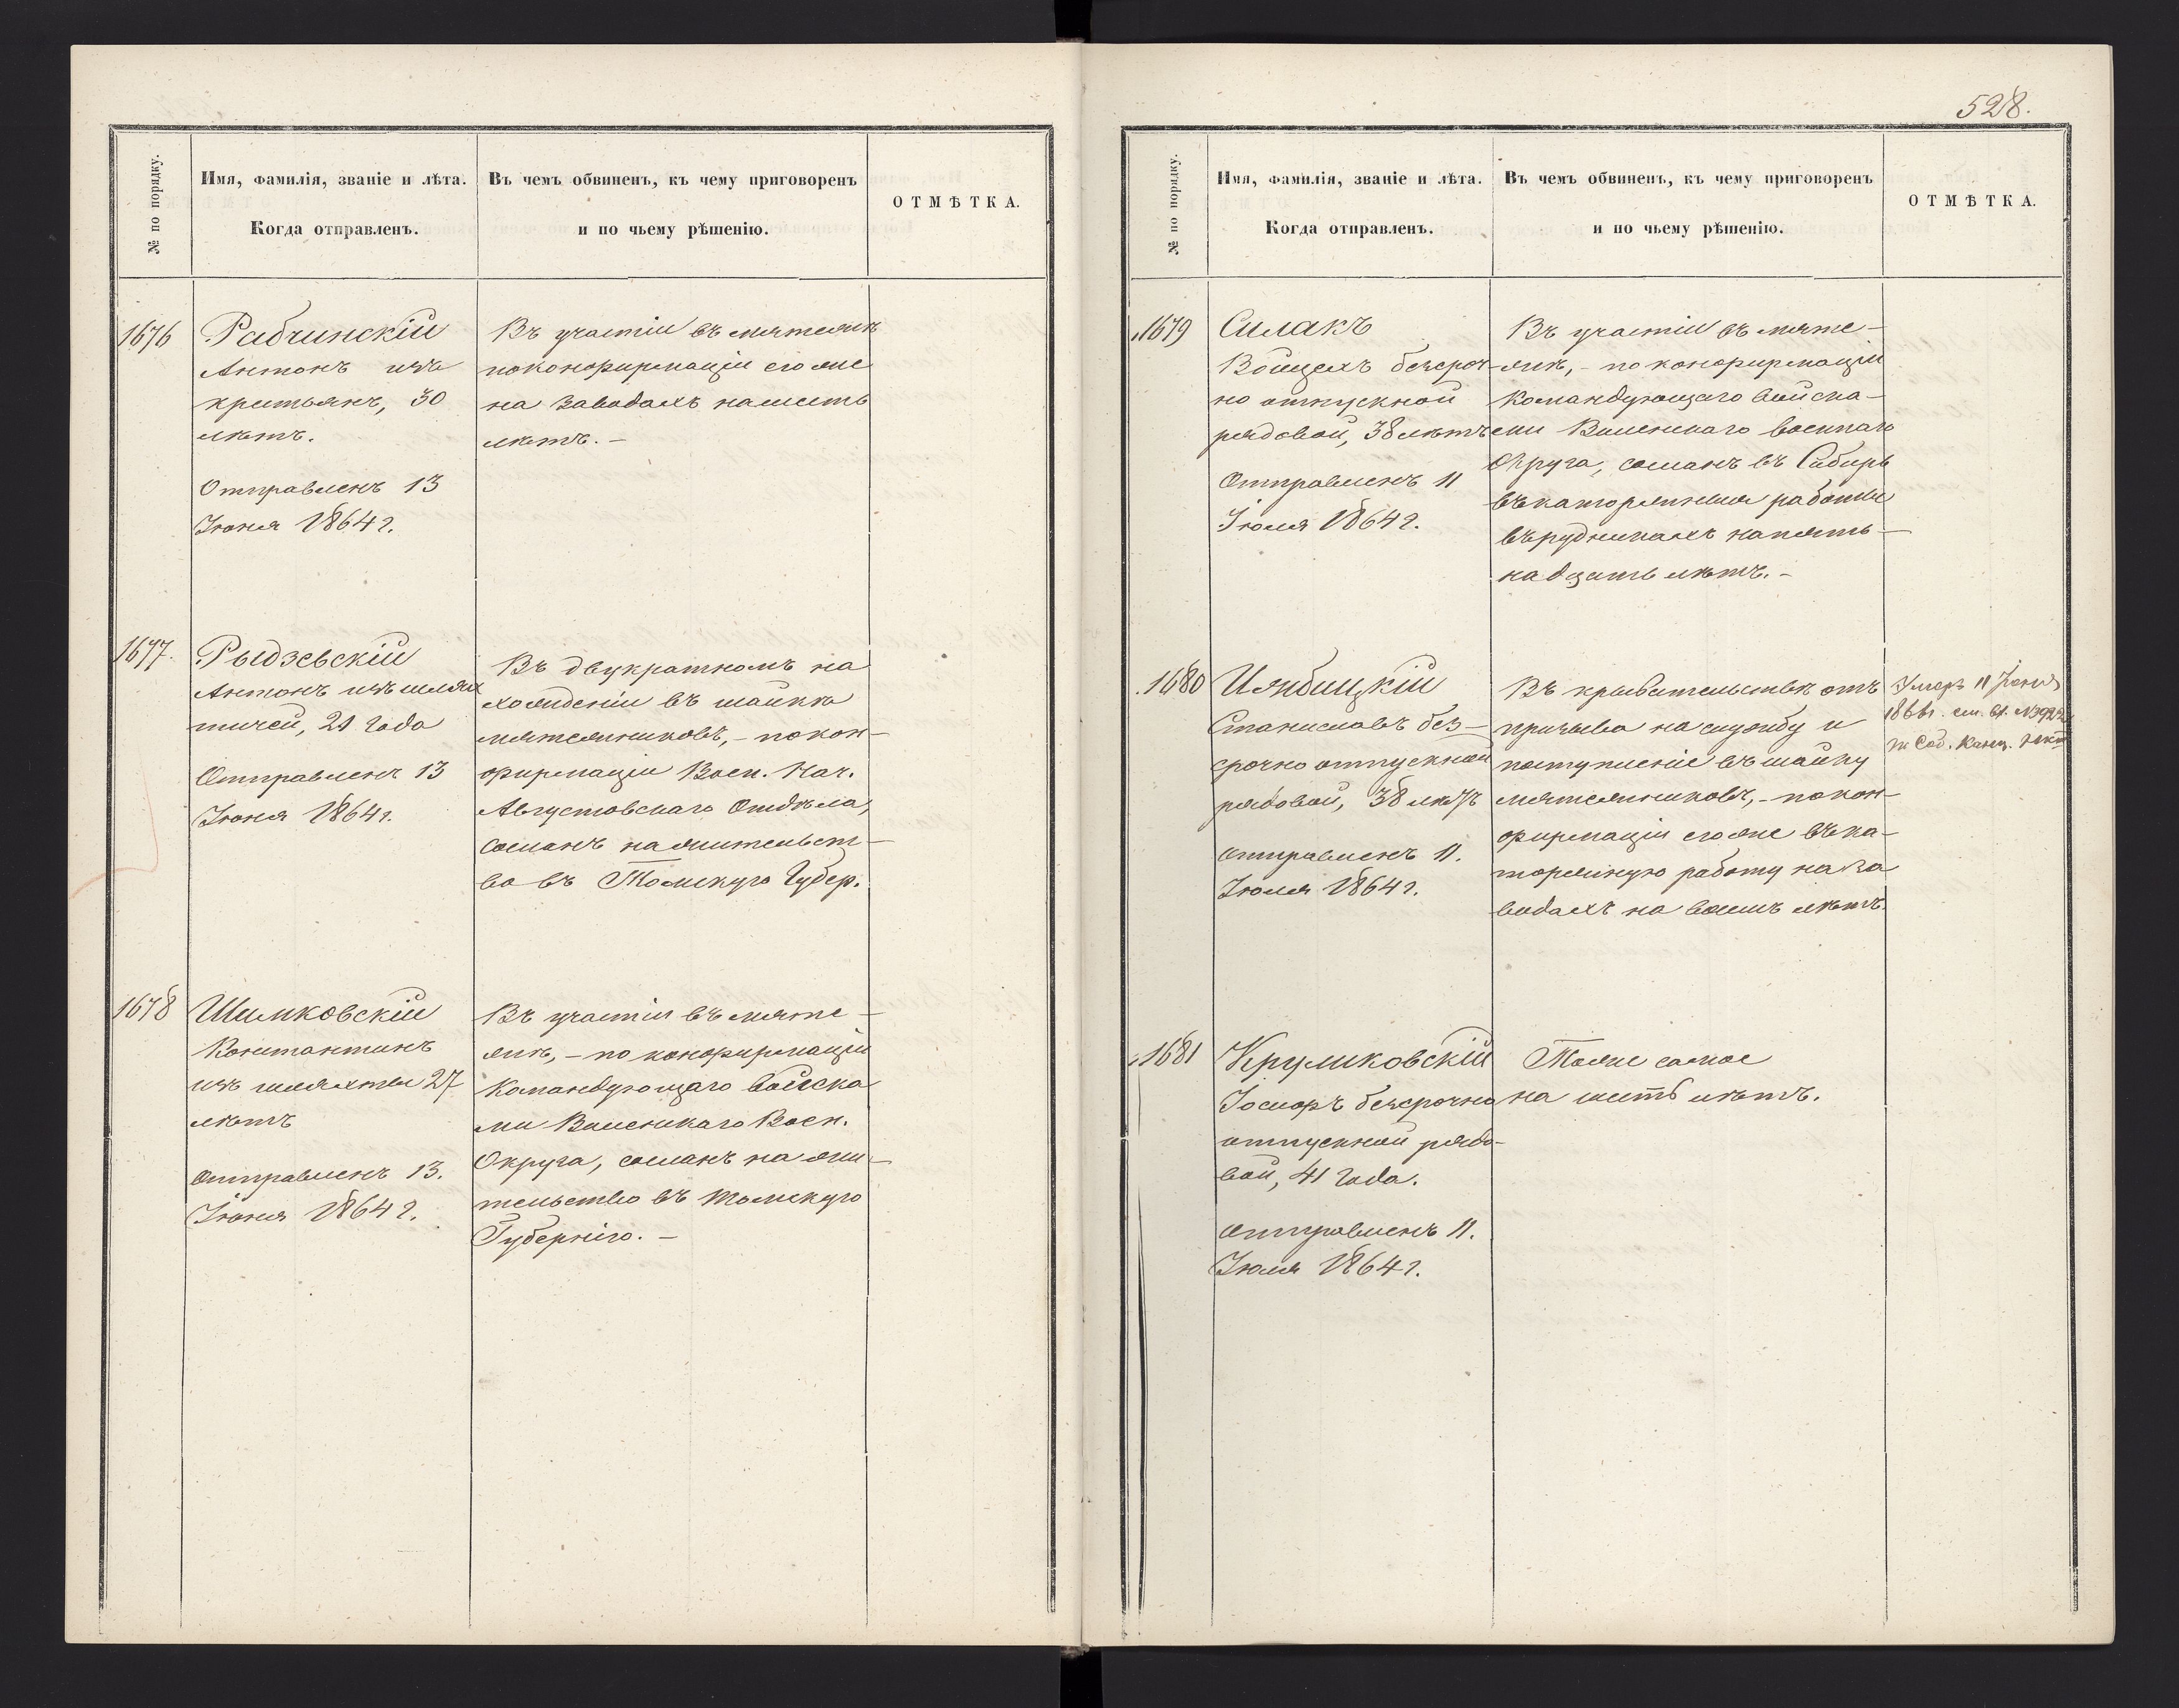 № по порядку.
Имя, фамилія, званіе и лѣта.
Когда отправленъ.
Въ чемъ обвиненъ, къ чему приговоренъ
и по чьему рѣшенію.
ОТМѢТКА.
1676
Рабчинскій
Антонъ изъ
крестьянъ, 30
лѣтъ.
Отправленъ 13
Іюня 1864 г.
Въ участіи въ мятежѣ
по конфирмаціи его же
на заводахъ на шесть
лѣтъ. –
1677.
Рыдзевскій
Антонъ изъ шлях
тичей, 21 года
Отправленъ 13
Іюня 1864 г.
Въ двукратномъ на
хожденіи въ шайкѣ
мятежниковъ, – по кон-
фирмаціи Воен. Нач.
Августовскаго Отдѣла,
сосланъ на жительст-
во въ Томскую Губер.
1678
Шимковскій
Константинъ
изъ шляхты 27
лѣтъ
Отправленъ 13.
Іюня 1864 г.
Въ участіи въ мяте-
жѣ, – по конфирмаціи
Командующаго войска
ми Виленскаго Воен.
Округа, сосланъ на жи-
тельство въ Томскую
Губернію. –
528.
№ по порядку.
Имя, фамилія, званіе и лѣта.
Когда отправленъ.
Въ чемъ обвиненъ, къ чему приговоренъ
и по чьему рѣшенію.
ОТМѢТКА.
1679
Силакъ
Войцехъ безсроч-
но отпускной
рядовой, 38 лѣтъ
Отправленъ 11
Іюля 1864 г.
Въ участіи въ мяте-
жѣ, – по конфирмаціи
Командующаго войска-
ми Виленскаго военнаго
Округа, сосланъ въ Сибирь
въ каторжныя работы
въ рудникахъ на пять-
надцать лѣтъ. –
1680
Изъбицкій
Станиславъ без-
срочно отпускной
рядовой, 38 лѣтъ
Отправленъ 11.
Іюля 1864 г.
Въ крывательствѣ отъ
призыва на службу и
поступленіе въ шайку
мятежниковъ, – по кон-
фирмаціи его же въ ка-
торжную работу на за
водахъ на восемь лѣтъ.
Умеръ 11 Іюня
1866 г. см. вх.
Соб. Канц.
1681
Крумковскій
Іосифъ безсрочно
отпускной рядо-
вой, 41 года.
Отправленъ 11.
Іюля 1864 г.
Тоже самое
на шесть лѣтъ.